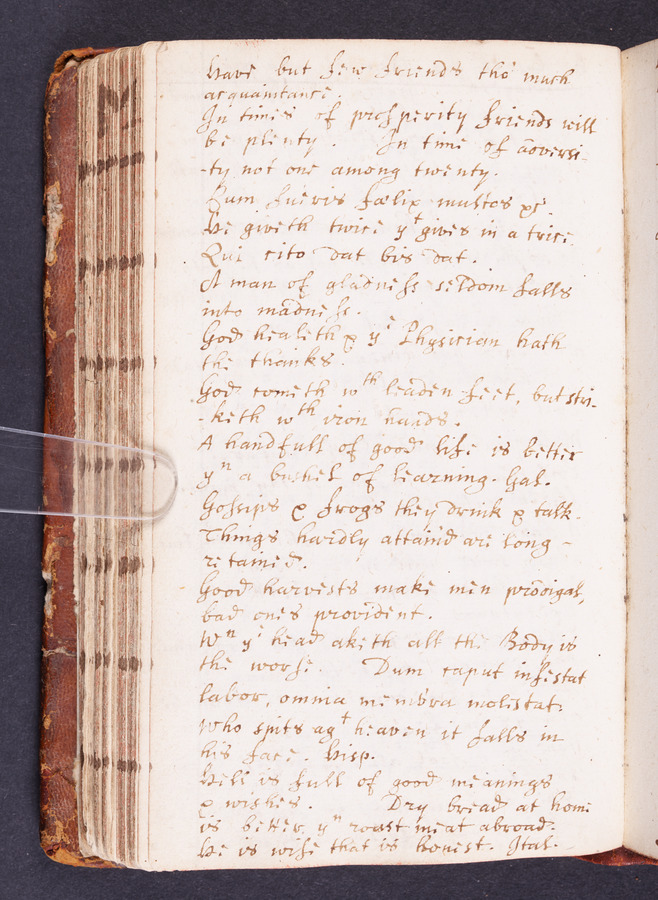 Have but few friends tho' much
acquaintance.
In times of prosperity friends will
be plenty. In time of adversi-
-ty not one among twenty.
Dum fueris fœlix multos &c.
He giveth twice yt gives in a trice
Qui cito dat bis dat.
A man of gladness seldom falls
into madness.
God healeth & ye Physician hath
the thanks.
God cometh wth leaden feet, but stri-
-keth wth iron hands.
A handfull of good life is better
yn a bushel of learning. Gal.
Gossips & frogs they drink & talk.
Things hardly attain'd are long -
retained.
Good harvests make men prodigal,
bad ones provident.
Wn ye head aketh all the Body is
the worse. Dum caput infestat
labor, omnia membra molestat.
Who spits agt heaven it falls in
his face. Hisp.
Hell is full of good meanings
& wishes. Dry bread at home
is better yn roast meat abroad.
He is wise that is honest. Ital.